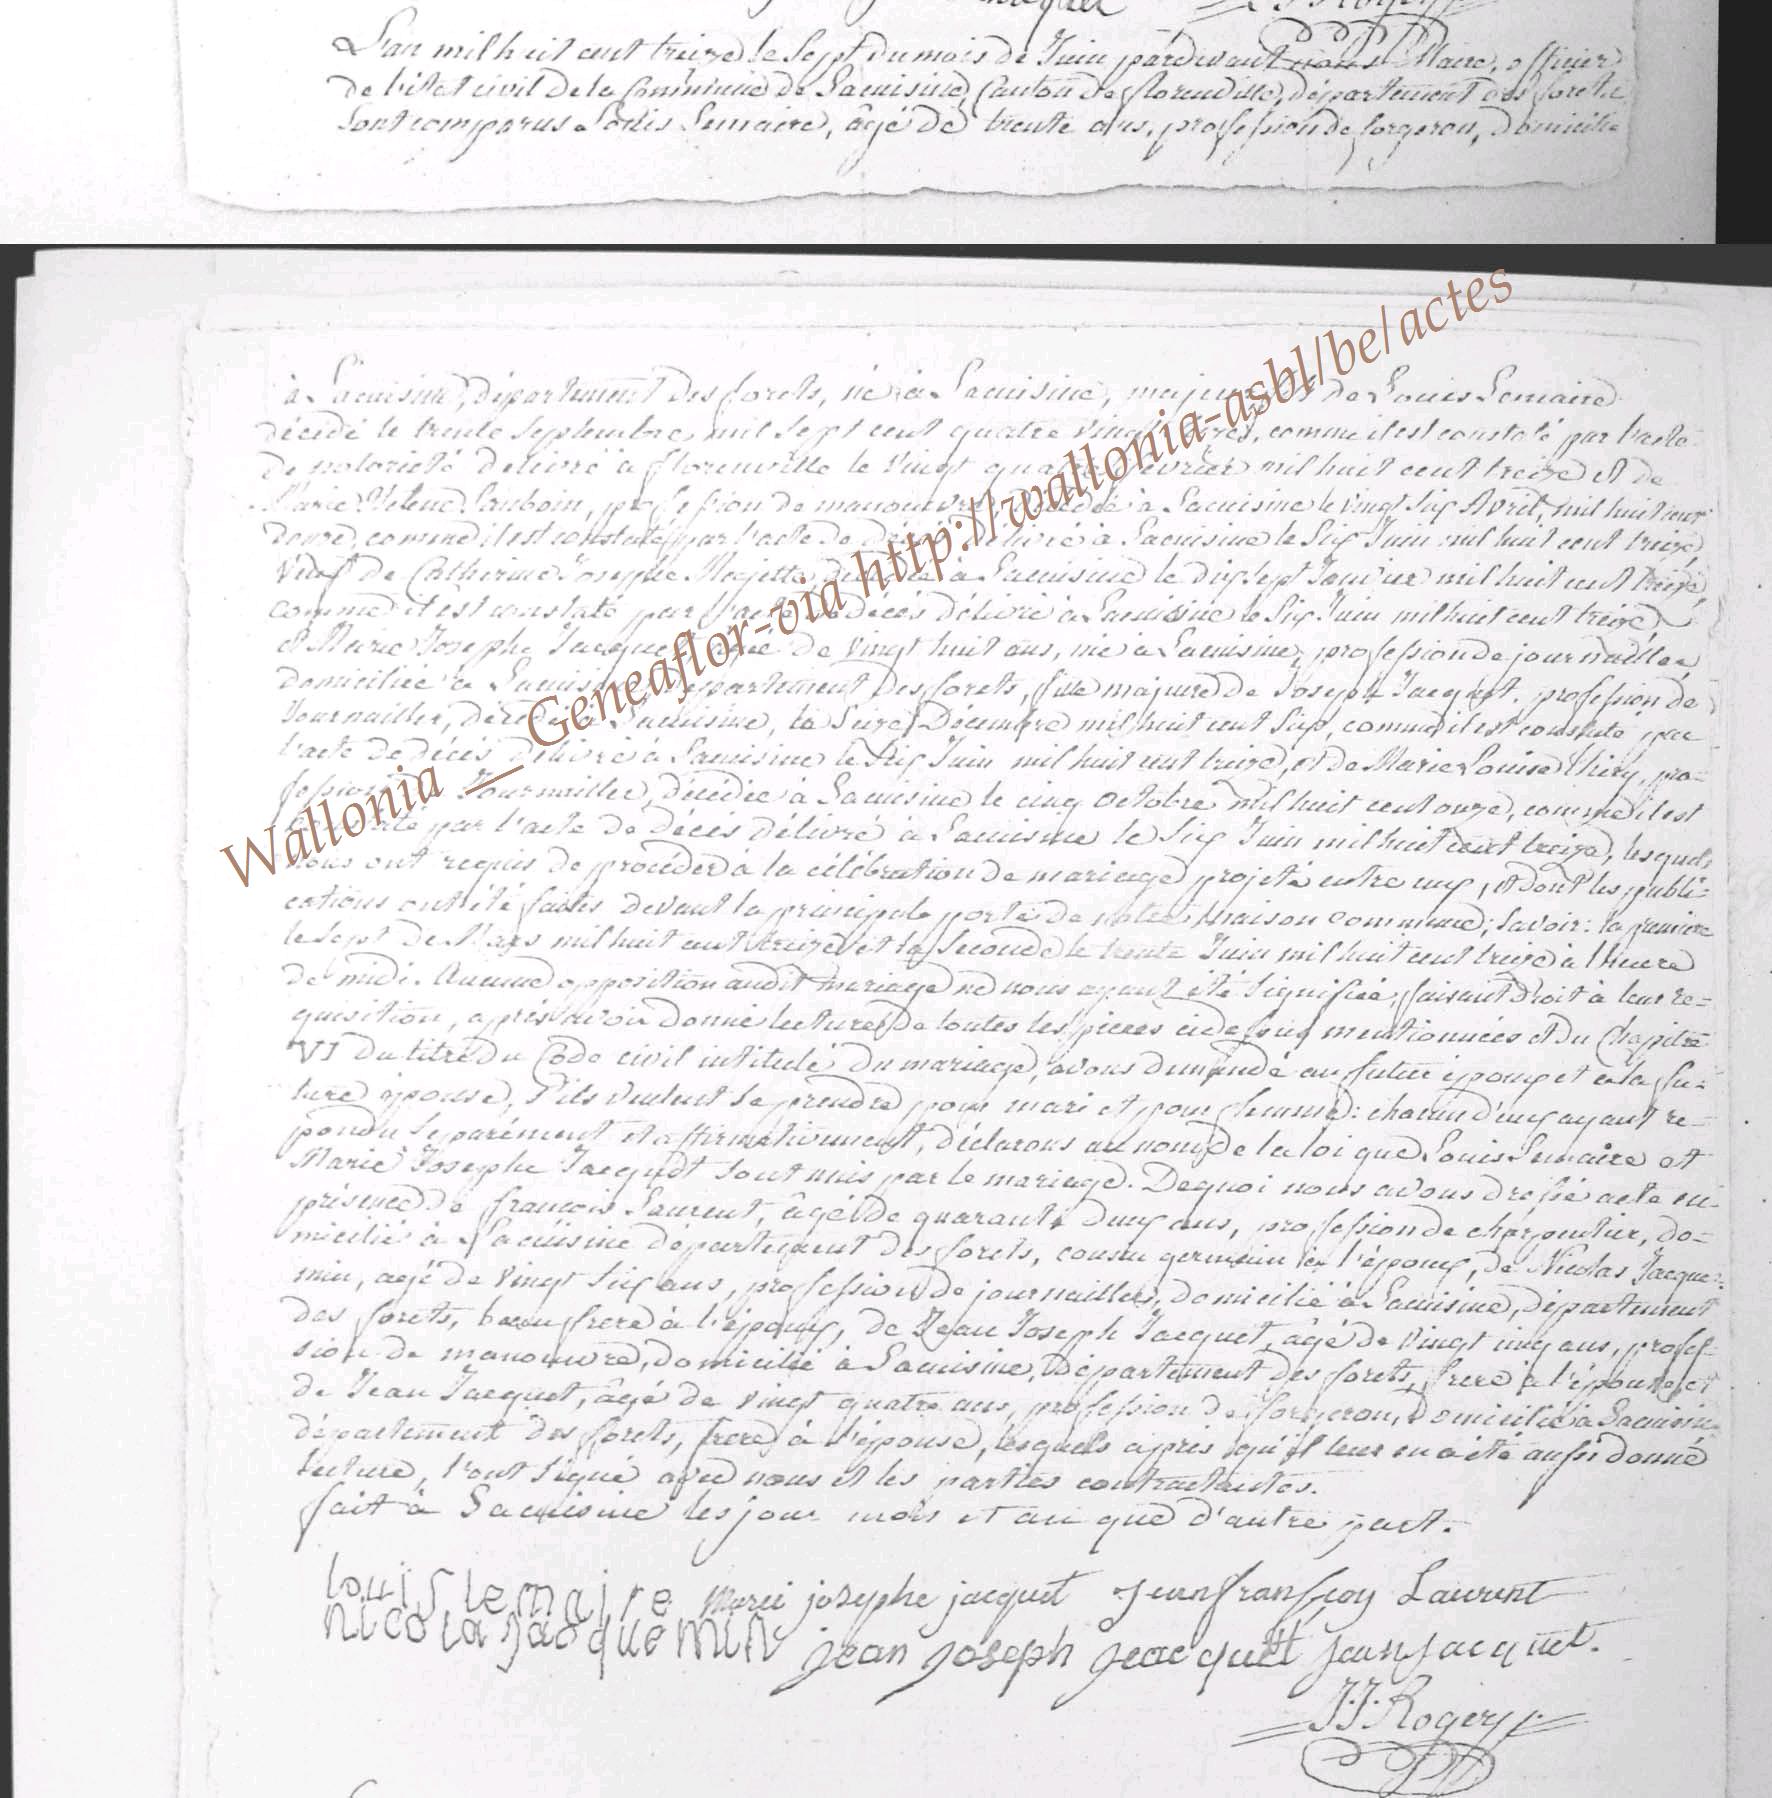 L'an mil huit cent treize le sept du mois de Juin pardevant nous Maire, officier
de l'état civil de la Commune de Lacuisine, Canton de florenville, département des forêts
sont comparus Louis Lemaire, âgé de trente ans, profession de forgeron, domicilié
à Lacuisine, département des forêts, né à Lacuisine, majeur, de Louis Lemaire
décédé le trente Septembre mil sept cent quatre vingt, comme il est constaté par l'acte
de notorieté delivré à florenville le vingt quatre fevrier mil huit cent treize et de
Marie Helene, profession de manouvre, décédée à Lacuisine le vingt six Avril, mil huit cent
douze, comme il est constaté par l'acte de décès délivré à Lacuisine le six Juin mil huit cent treize,
veuf de Catherine Josephe, décédée à Lacuisine le dix sept Janvier mil huit cent treize,
comme il est constaté par l'acte de décès délivré à Lacuisine le six Juin mil huit cent treize
et Marie Josephe Jacquet âgée de vingt huit ans, née à Lacuisine, profession de journaillée
domiciliée à Lacuisine, département des forets, fille majeure de Joseph Jacquet, profession de
Journaillier, décédé à Lacuisine, le seize Décembre mil huit cent six, comme il est constaté par
l'acte de décès délivré à Lacuisine le six Juin mil huit cent treize, et de Marie Louise thiry, pro-
fession de Journaillée, décédée à Lacuisine le cinq octobre mil huit cent onze, comme il est
constaté par l'acte de décès délivré à Lacuisine le six Juin mil huit cent treize, lesquels
nous ont requis de procéder à la célébration de mariage projeté entre eux, et dont les publi-
cations ont été faites devant la principale porte de notre maison commune; savoir: la premiere
le sept de Mars mil huit cent treize et la seconde le trente Juin mil huit cent treize à l'heure
de midi. Aucune opposition audit mariage ne nous ayant été signifiée, faisant droit à leur re-
quisition, après avoir donné lecture de toutes les pieces ci dessus mentionnées et du Chapitre
VI du titre du Code civil intitulé du mariage, avons demandé au futur époux et à la fu-
ture épouse, s'ils veulent se prendre pour mari et pour femme: chacun d'eux ayant re-
pondu séparément et affirmativement, déclarons au nom de la loi que Louis Lemaire et
Marie Josephe Jacquet sont unis par le mariage. De quoi nous avons dressé acte en
présence de françois Laurent, âgé de quarante deux ans, profession de charpentier, do-
micilié à Lacuisine département des forets, cousin germain à l'époux, de Nicolas Jacque-
min, agé de vingt six ans, profession de journaillier, domicilié à Lacuisine, département
des forets, beau frere à l'époux, de Jean Joseph Jacquet, âgé de vingt cinq ans, profes-
sion de manouvre, domicilié à Lacuisine, département des forets, frere à l'épouse, et
de Jean Jacquet, âgé de vingt quatre ans, profession de forgeron, domicilié à Lacuisine
département des forets, frere à l'épouse, lesquels après qu'il leur en a été aussi donné
lecture, l'ont signé avec nous et les parties contractantes.
fait à Lacuisine les jour mois et an que d'autre part.
louis lemaire Marie josephe jacquet jean franssoy Laurent
nicola jacquemin jean joseph jacquet jean jacquet.
J.J. Rogery
Wallonia _ Geneaflor-via http://wallonia-asbl/be/actes